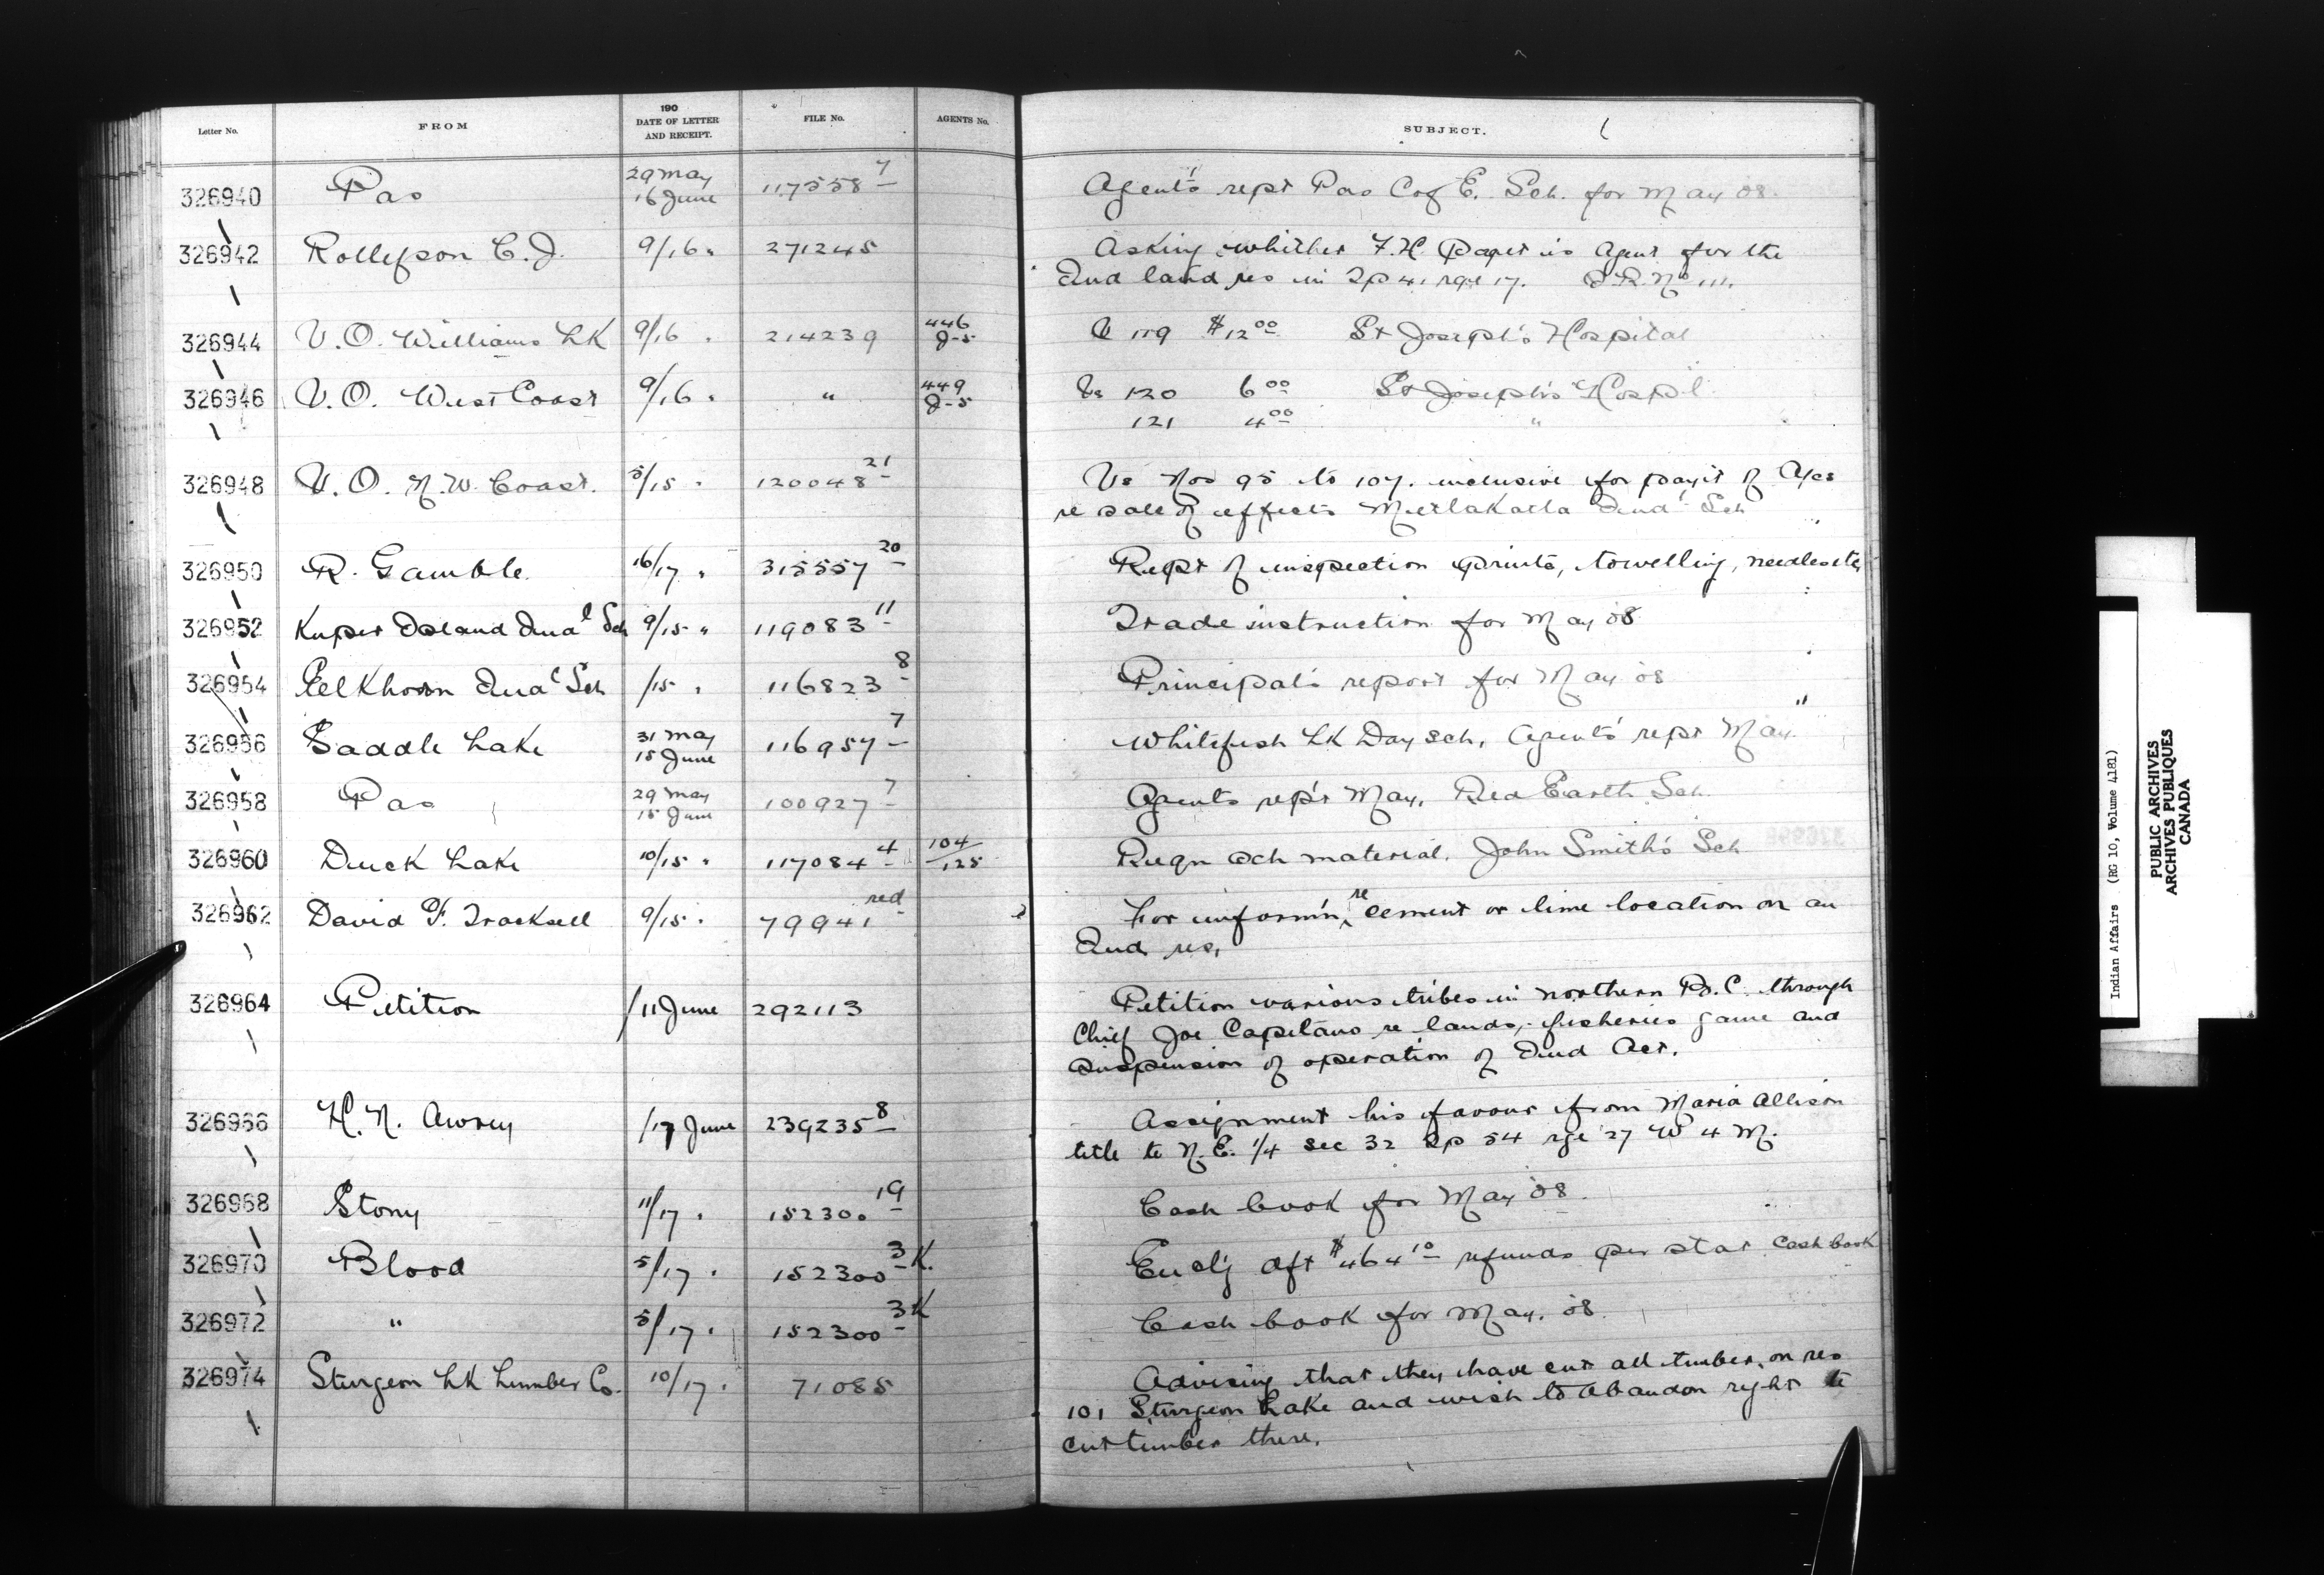 Letter No. FROM 190 DATE OF LETTER AND RECEIPT. FILE No. AGENTS No. SUBJECT.
326940 Pas 29 May 16 June 117558 7 Agent's rept Pas Cof E. Sch. for May 08.
326942 Rollefson C.J. 9/16 " 271245 Asking whither F.H. is Agent for the
Ind land res in Tp 41 rge 17. I.R. No 111.
326944 V.O. Williams LK 9/16 " 214239 446 J-5 V 119 $12 00 St Joseph's Hospital
326946 V.O. West Coast 9/16 " " 449 J-5 Vs 120 6 00 St Joseph's Hosp'l
121 4 00 "
326948 V.O. N.W. Coast. 5/15 " 120048 21 Vs Nos 95 to 107. inclusive for paym't of
re sale of effects Metlakatla Ind'l Sch
326950 R. Gamble. 16/17 " 315557 20 Rept of inspection prints, towelling, needles etc
326952 Kuper Island Indal Sch 9/15 " 119083 11 Trade instruction for May 08
326954 Elkhorn Indal Sch /15 " 116823 8 Principal's report for May 08
326956 Saddle Lake 31 May 15 June 116957 7 Whitefish LK Day Sch, Agent's rept May "
326958 Pas 29 May 15 June 100927 7 Agents rep't May. Red Earth Sch.
326960 Duck Lake 10/15 " 117084 4 104/125 Reqn sch material. John Smith's Sch
326962 David F. Tracksell 9/15 " 79941 red For inform'n, re cement or lime location on an
Ind res,
326964 Petition /11 June 292113 Petition various tribes in northern B.C. through
Chief Joe Capilano re lands, fisheries game and
suspension of operation of Ind Act.
326966 H.N. Awrey /17 June 239235 8 Assignment his favour from Maria Allison
title to N.E. 1/4 Sec 32 Tp 54 rge 27 W 4 M.
326968 Stony 11/17 " 152300 19 Cash book for May 08.
326970 Blood 5/17 " 152300 3 K. Encl'g dft $464 10 refunds per stat cash book
326972 " 5/17 " 152300 3 K Cash book for May. 08.
326974 Sturgeon LK Lumber Co. 10/17 " 71085 Advising that they have cut all timber on res
101 Sturgeon Lake and wish to abandon right to
cut timber there.
Indian Affairs (RG 10, Volume 4181)
PUBLIC ARCHIVES
ARCHIVES PUBLIQUES
CANADA